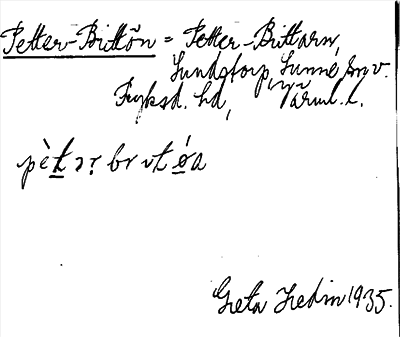 Petter-Brittön = Petter-Brittarn,
Sundstorp, Sunne sn,
Fryksd. hd, Värml. l.
pètər britöa
Greta Hedin 1935.